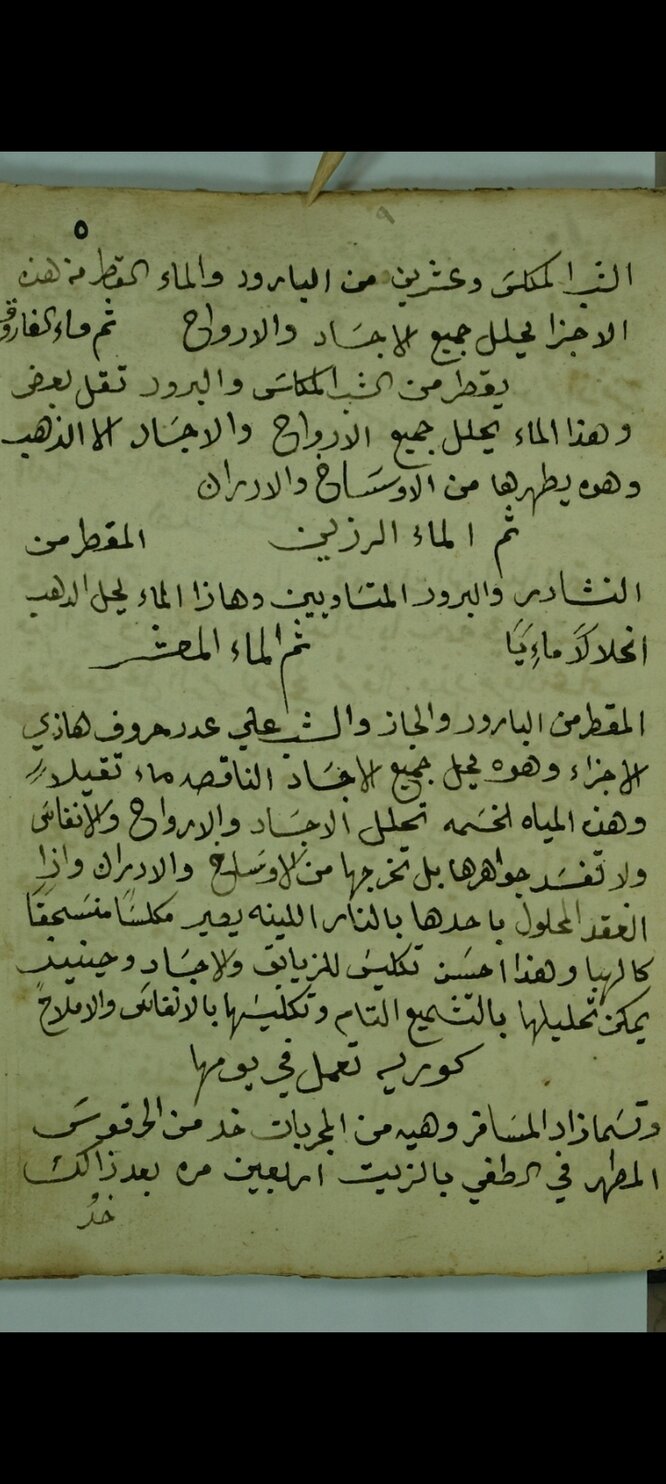 ٥
الشب المكلس وعشرين من البارود والماء المقطر من هذه
الاجزا يحلل جميع الاجساد والارواح ثم ماء الفاروق
يقطر من الشب المكلس والبرود تقل بعض
وهذا الماء يحلل جميع الارواح والاجساد الا الذهب
وهوه يطهرها من الاوساخ والادران
ثم الماء الرزين المقطر من
النشادر والبرود المتساويين وهاذا الماء يحل الدهب
انحلالاً ماءِيًا ثم الماء المعشر
المقطر من البارود والجاز والشب علي عدد حروف هاذي
الاجزاء وهوه يحل جميع الاجساد الناقصه ماء تقيلا
وهذه المياه الخسمه تحلل الاجساد والارواح والانفاس
ولا تفسد جواهرها بل تخرجها من الاوساخ والادران واذا
انعقد المحلول باحدها بالنار اللينه يصير مكلسًا منسحقًا
كالهبا وهذا احسن تكليس للزيابق ولاجساد وحينيد
يمكن تحليلها بالتشميع التام وتكليسها بالانفاس والاملاح
تعمل في يومها
وتسما زاد المسافر وهيه من المجربات خد من
المطهر في الطفي بالزيت اربعين مره بعد ذالك
خذ